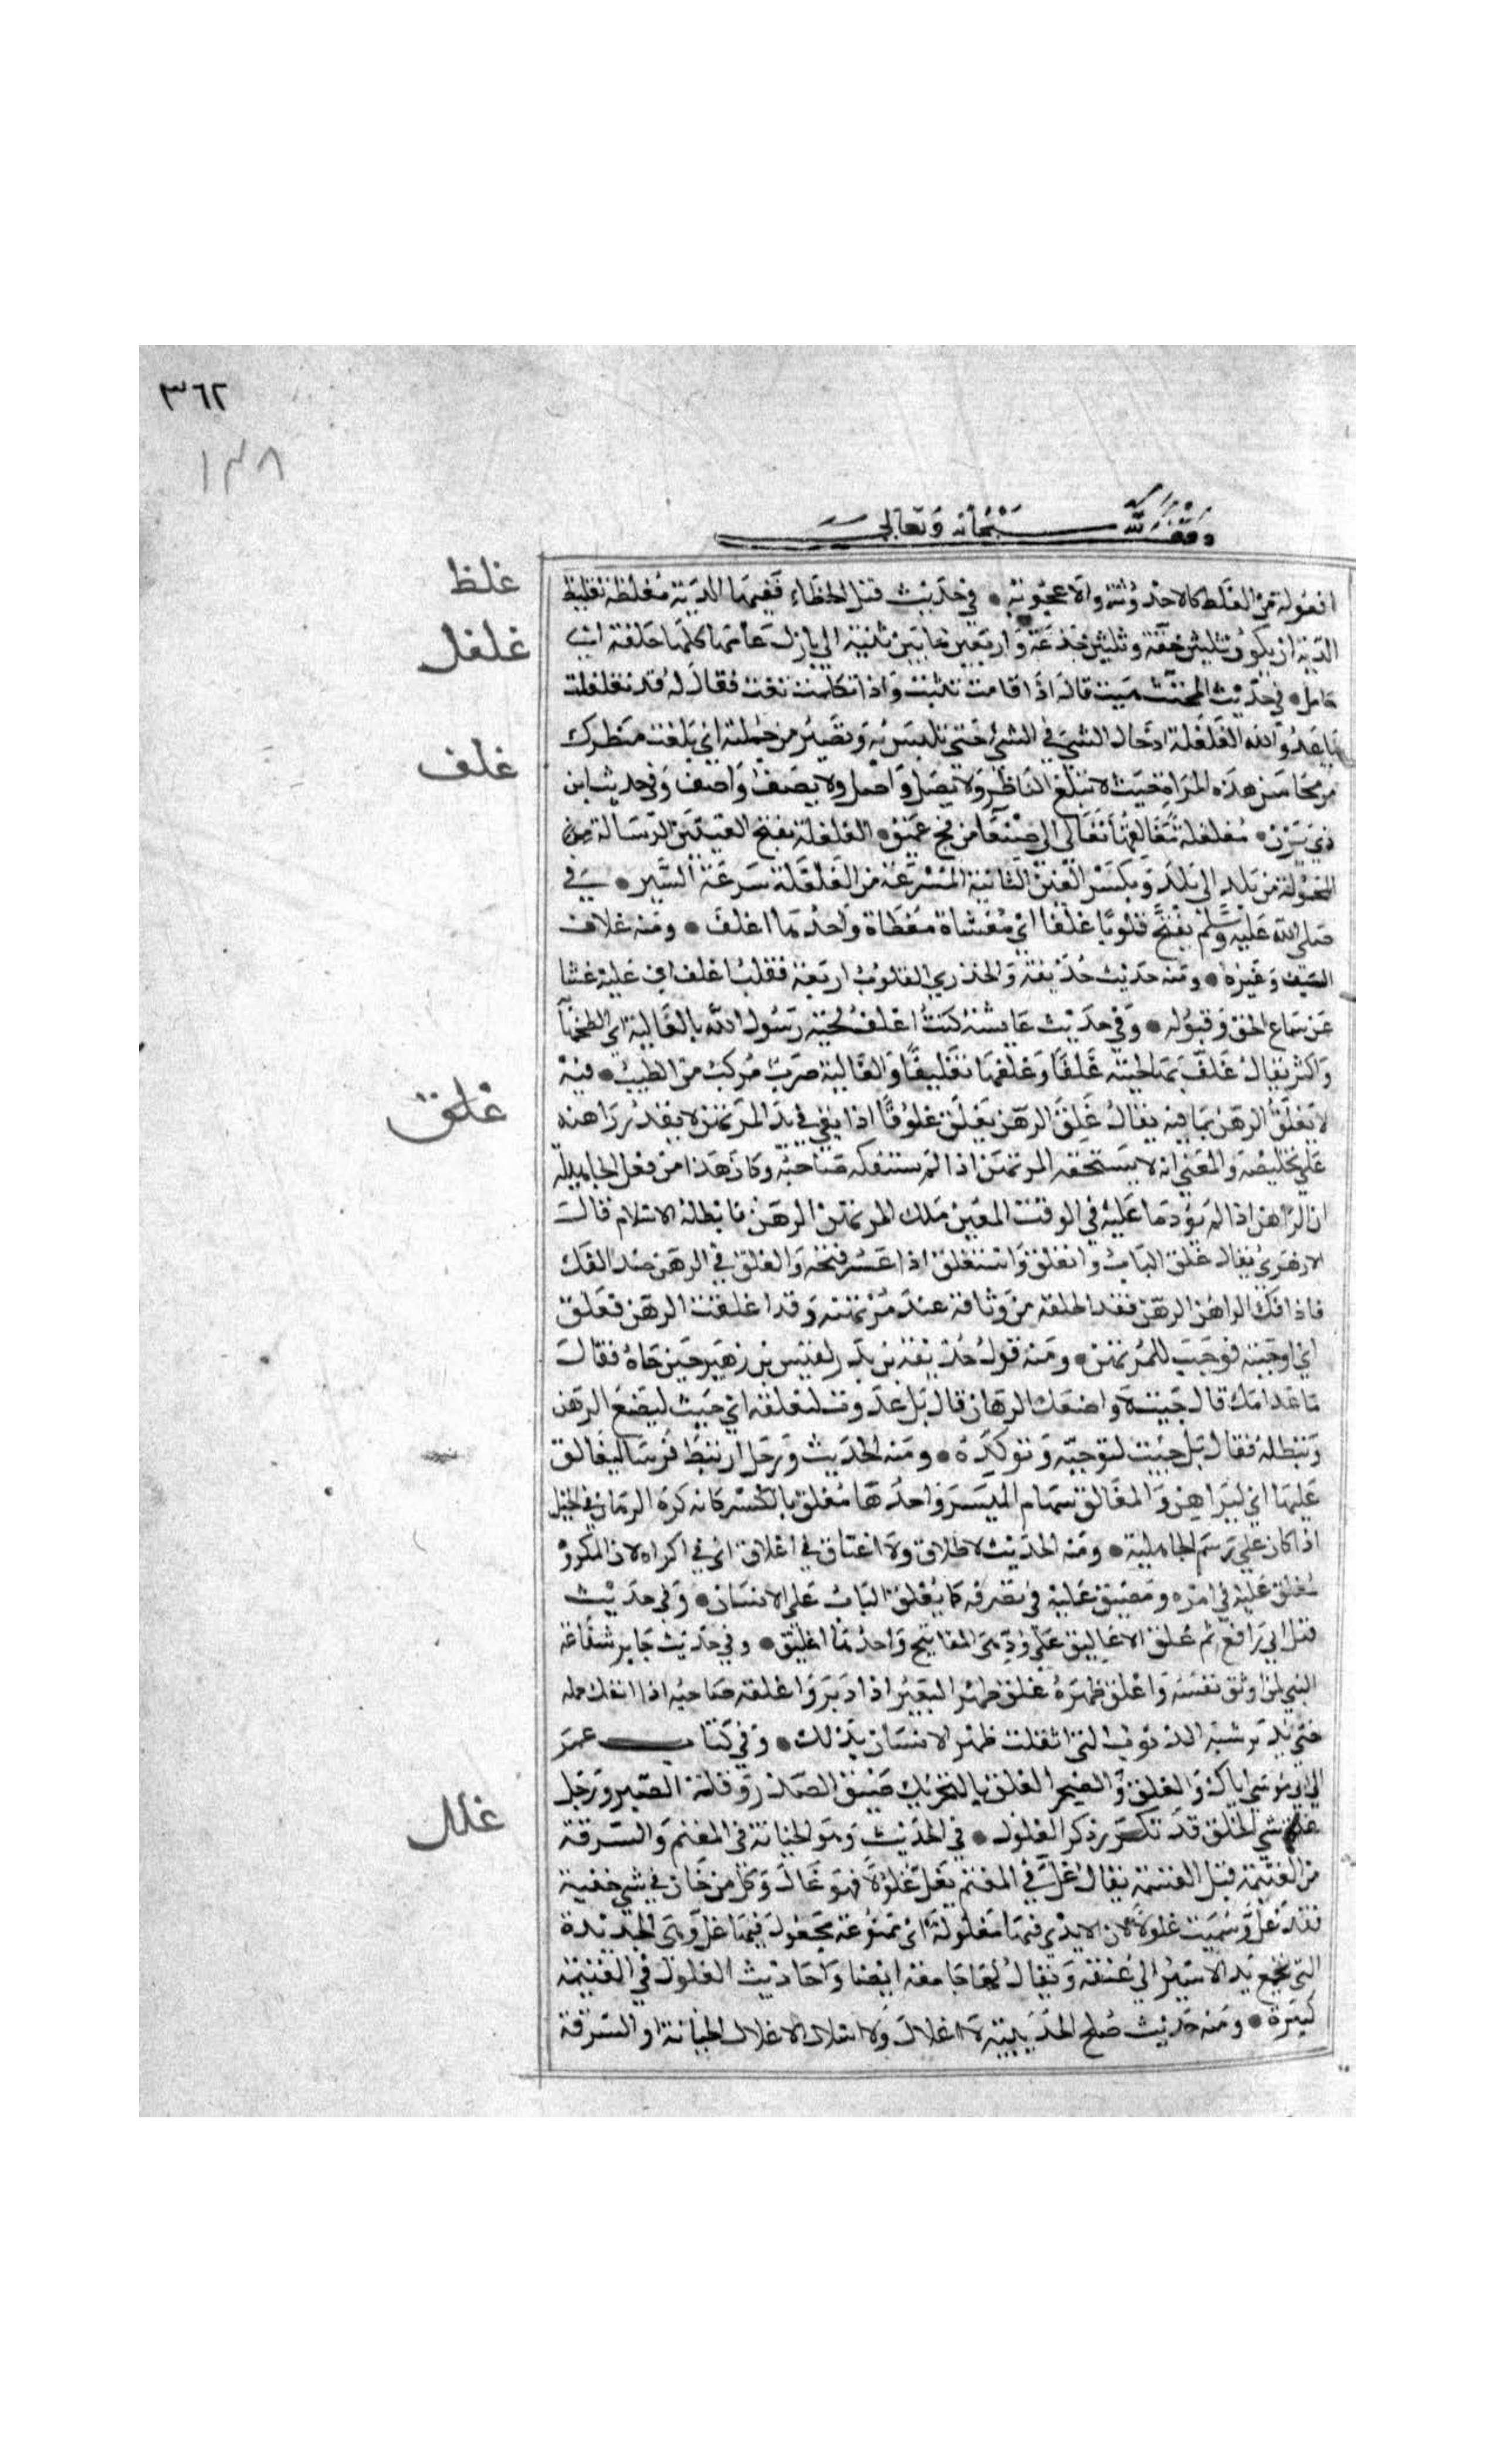 ٣٦٢
١٣٨
وقف لله سبحانه وتعالى
غلظ
افعولة من الغلط كالاحدوثة والاعجوبة • في حديث قتل الخطاء ففيها الدية مغلظة تغليظ
غلغل
الدية ان يكون ثلثين حقة وثلثين جذعة واربعين ما بين ثنية الى بازل عامها كلها خلفة اي
حامل • في حديث المخنث هيت قال اذا قامت تثنت واذا تكلمت تغنت فقال له قد تغلغلت
يا عدو الله الغلغلة ادخال الشي في الشي حتى تلتبس به وتصير من جملته اي بلغت بنظرك
غلف
من محاسن هذه المراة حيث لا تبلغ الناظر ولا يصل واصل ولا يصف واصف وفي حديث ابن
ذي يزن • مغلغلة مغالقها تغالى الى صنعا من فج عميق • الغلغلة بفتح الغينين الرسالة من
المحمولة من بلد الى بلد وبكسر الغين الثانية المسرعة من الغلغلة سرعة السير • في
صلى الله عليه وسلم يفتح قلوبا غلفا اي مغشاة مغطاة واحدها اغلف • ومنه غلاف
السيف وغيره • ومنه حديث حذيفة والخدري القلوب اربعة فقلب اغلف اي عليه غشا
عن سماع الحق وقبوله • وفي حديث عايشة كنت اغلف لحية رسول الله بالغالية اي الطخها
واكثر يقال غلف بها لحيته غلفا وغلفها تغليفا والغالية ضرب مركب من الطيب • فيه
غلق
لا يغلق الرهن بما فيه يقال غلق الرهن يغلق غلوقا اذا بقي في يد المرتهن لا يقدر راهنه
على تخليصه والمعنى انه لا يستحقه المرتهن اذا لم يستفكه صاحبه وكان هذا من فعل الجاهلية
ان الراهن اذا لم يؤد ما عليه في الوقت المعين ملك المرتهن الرهن فابطله الاسلام قال
الازهري يقال غلق الباب وانغلق واستغلق اذا عسر فتحه والغلق في الرهن ضد الفك
فاذا فك الراهن الرهن فقد اطلقه من وثاقه عند مرتهنه وقد اغلقت الرهن فغلق
اي اوجبته فوجب للمرتهن • ومنه قول حذيفة بن بدر لقيس بن زهير حين جاه فقال
ما غدا بك قال جيت لاواضعك الرهان قال بل غدوت لتغلقه اي جيت لتضع الرهن
وتبطله فقال بل جيت لتوجبه وتوكده • ومنه الحديث ورجل ارتبط فرسا ليغالق
عليها اي ليراهن والمغالق سهام الميسر واحدها مغلق بالكسر كانه كره الرهان في الخيل
اذا كان على رسم الجاهلية • ومنه الحديث لا طلاق ولا عتاق في اغلاق اي في اكراه لان المكره
مغلق عليه في امره ومضيق عليه في تصرفه كما يغلق الباب على الانسان • وفي حديث
قتل ابي رافع ثم علق الاغاليق على ود هي المفاتيح واحدها اغليق • وفي حديث جابر شفاعة
النبي لمن اوثق نفسه واغلق ظهره غلق ظهر البعير اذا دبر واغلقه صاحبه اذا اثقل حمله
حتى يدبر شبه الذنوب التي اثقلت ظهر الانسان بذلك • وفي كتاب عمر
الى ابي موسى اياك والغلق والضجر الغلق بالتحريك ضيق الصدر وقلة الصبر ورجل
غلل
غلق سي الخلق قد تكرر ذكر الغلول • في الحديث وهو الخيانة في المغنم والسرقة
من الغنيمة قبل القسمة يقال غل في المغنم يغل غلولا فهو غال وكل من خان في شي خفية
فقد غل وسميت غلولا لان الايدي فيها مغلولة اي ممنوعة مجعول فيها غل وهي الحديدة
التي تجمع يد الاسير الى عنقه ويقال لها جامعة ايضا واحاديث الغلول في الغنيمة
كثيرة • ومنه حديث صلح الحديبية لا اغلال ولا اسلال الاغلال الخيانة او السرقة